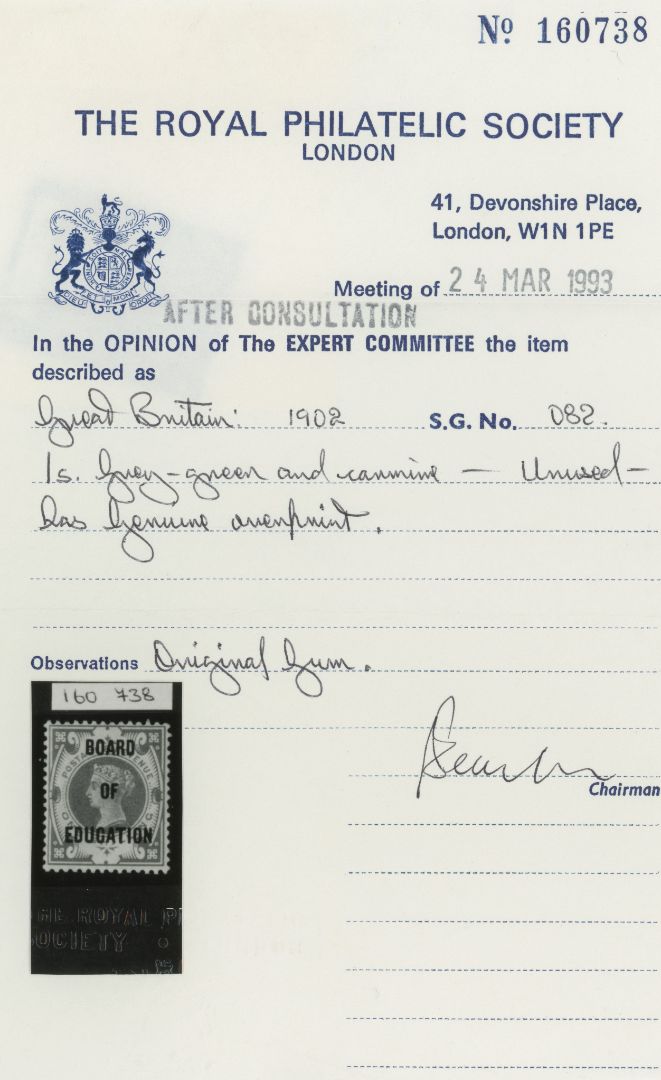 Nº 160738
THE ROYAL PHILATELIC SOCIETY
LONDON
41, Devonshire Place,
London, W1N 1PE
Meeting of 24 MAR 1993
AFTER CONSULTATION
In the OPINION of The EXPERT COMMITTEE the item
described as
Great Britain: 1902 S.G. No. O82.
1s. Grey-green and carmine — Unused —
has genuine overprint.
Observations Original Gum.
160 738
BOARD
OF
EDUCATION
Chairman
HE ROYAL P
OCIETY